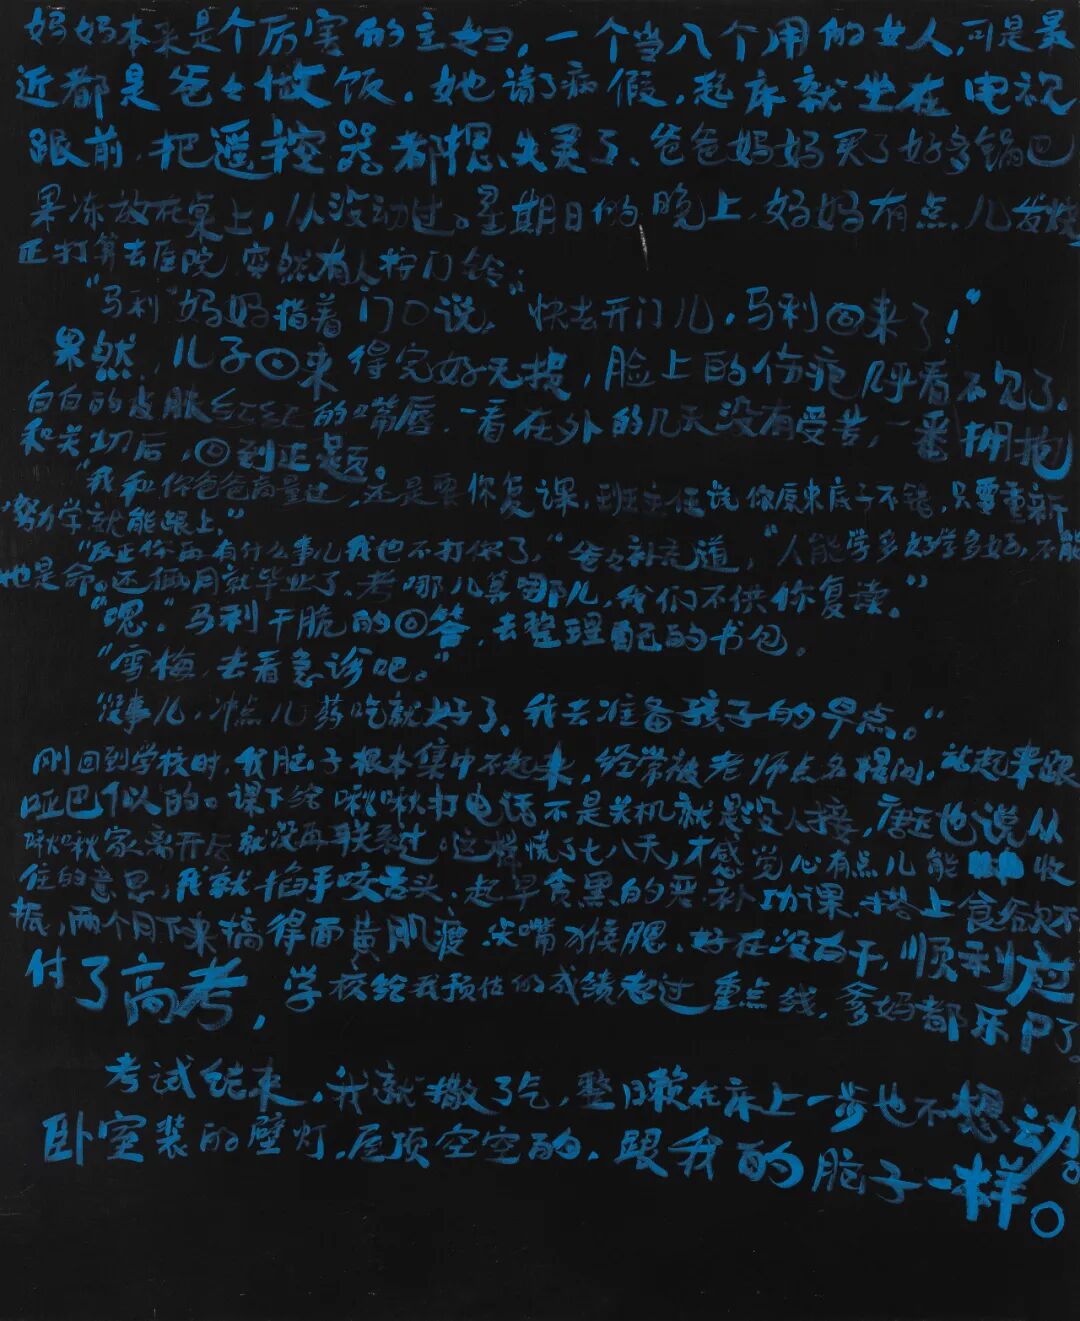 妈妈本来是个厉害的主妇，一个当八个用的女人，可是最
近都是爸々做饭。她请了病假，起床就坐在电视
跟前，把遥控器都摁失灵了、爸爸妈妈买了好多锅巴
果冻放在桌上，从没动过。星期日的晚上，妈妈有点儿发烧
正打算去医院，突然有人按门铃：
“马利”妈妈指着门口说：“快去开门儿，马利回来了！”
果然，儿子回来得完好无损，脸上的伤疤几乎看不见了，
白白的皮肤红红的嘴唇，一看在外的几天没有受苦，一番拥抱
和关切后，回到正题。
“我和你爸爸商量过，还是要你复课，班主任说你原来底子不错，只要重新
努力学就能跟上。”
“反正你再有什么事儿我也不打你了，”爸々补充道，“人能学多好学多好，不能
也是命。还俩月就毕业了、考哪儿算哪儿，我们不供你复读。”
“嗯。”马利干脆的回答，去整理自己的书包。
“雪梅，去看急诊吧。”
“没事儿，冲点儿药吃就好了，我去准备孩子的早点。”
刚回到学校时，我脑子根本集中不起来，经常被老师点名提问，站起来跟
哑巴似的。课下给啾啾打电话不是关机就是没人接，唐王也说从
啾啾家离开后就没再联系过。这样慌了七八天，才感觉心有点儿能收
住的意思，我就掐手咬舌头、起早贪黑的恶补功课，搭上食欲不
振，两个月下来搞得面黄肌瘦、尖嘴猴腮、好在没白干，顺利应
付了高考，学校给我预估的成绩超过重点线，爹妈都乐P了。
考试结束，我就撒了气，整日赖在床上一步也不想动。
卧室装的壁灯，屋顶空空的，跟我的脑子一样。